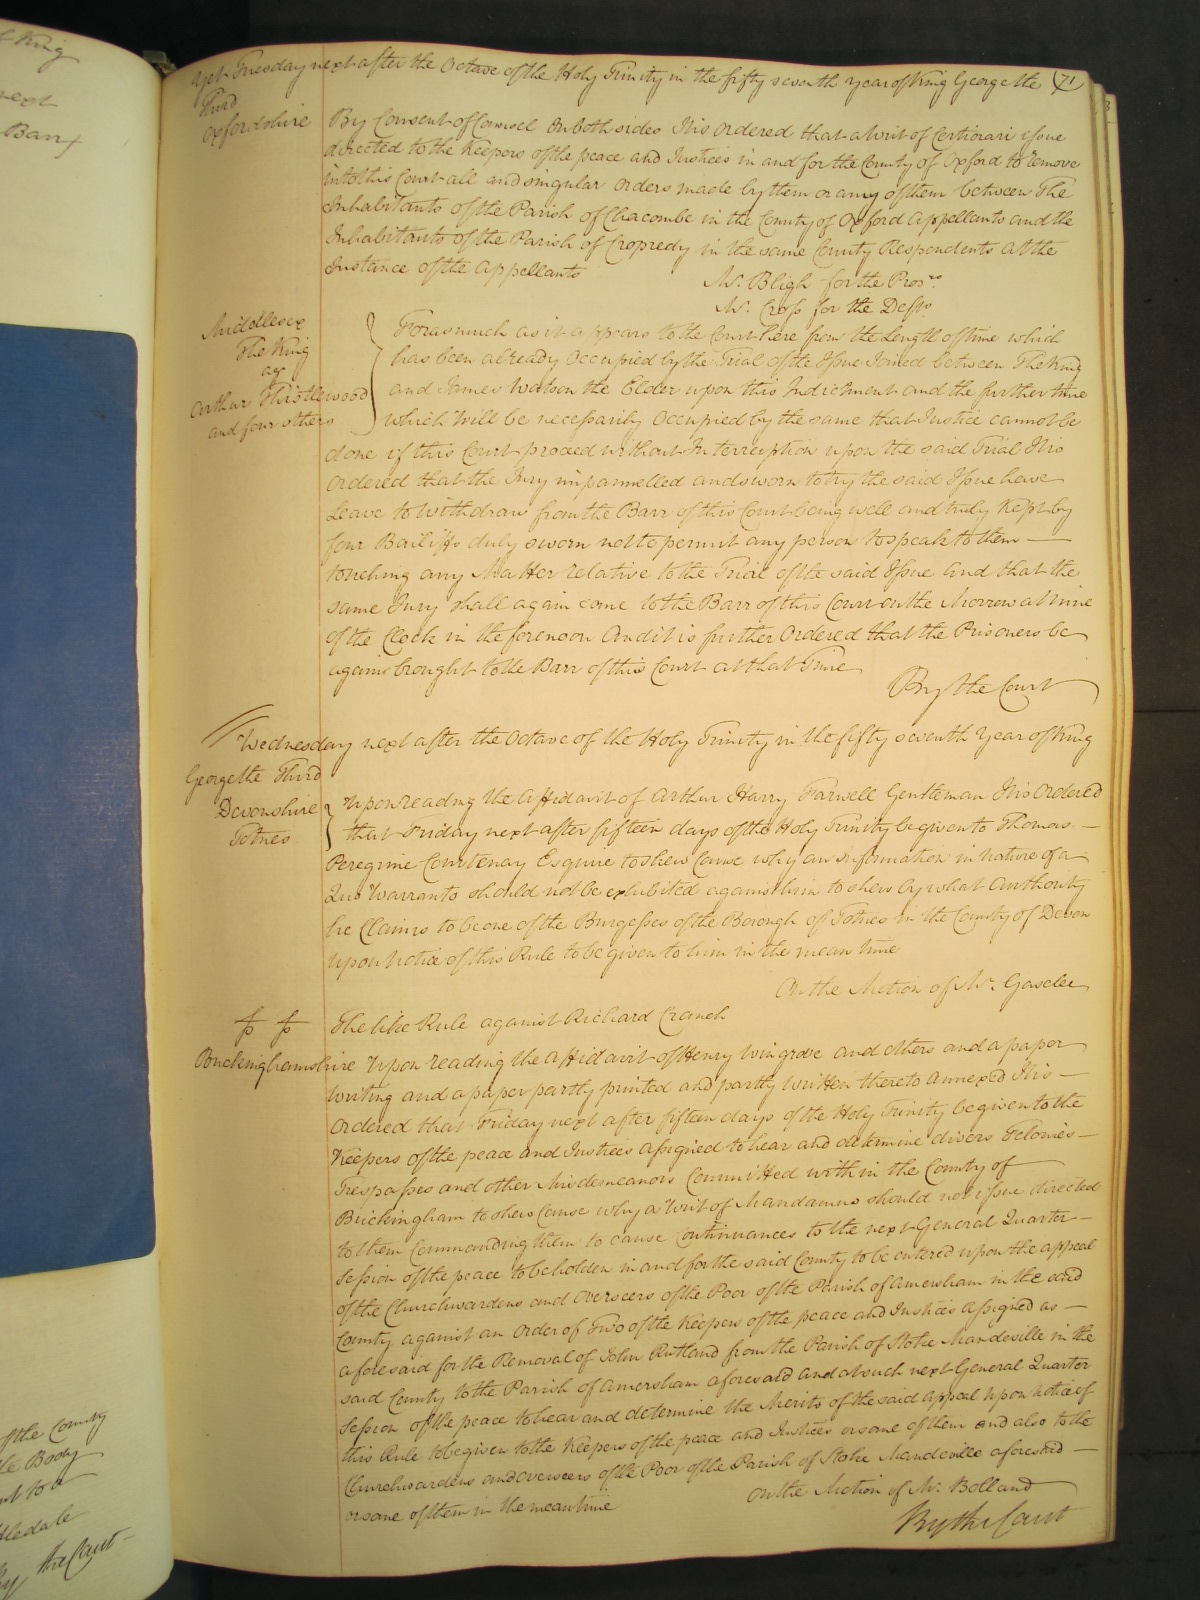 f King
next
Barr
Yet Tuesday next after the Octave of the Holy Trinity in the fifty seventh Year of King George the 71
Third
Oxfordshire
By Consent of Counsel on both sides It is ordered that a Writ of Certiorari issue
directed to the Keepers of the peace and Justices in and for the County of Oxford to remove
into this Court all and singular Orders made by them or any of them between The
Inhabitants of the Parish of Chacombe in the County of Oxford Appellants and the
Inhabitants of the Parish of Cropredy in the same County Respondents at the
Instance of the Appellants
Mr. Bligh for the Pros
Mr. Cross for the Defts
Middlesex
The King
agt
Arthur Thistlewood
and four others
Forasmuch as it appears to the Court here from the Length of time which
has been already Occupied by the Trial of the Issue Joined between The King
and James Watson the Elder upon this Indictment and the further time
which will be necessarily Occupied by the same that Justice cannot be
done if this Court proceed without Interruption upon the said Trial It is
Ordered that the Jury impannelled and sworn to try the said Issue have
Leave to withdraw from the Barr of this Court being well and truly kept by
four Bailiffs duly sworn not to permit any person to speak to them —
touching any Matter relative to the Trial of the said Issue And that the
same Jury shall again come to the Barr of this Court on the Morrow at Nine
of the Clock in the forenoon And it is further Ordered that the Prisoners be
again brought to the Barr of this Court at that Time
By the Court
Wednesday next after the Octave of the Holy Trinity in the fifty seventh Year of King
George the Third
Devonshire
Totnes
Upon reading the Affidavit of Arthur Harry Farwell Gentleman It is Ordered
that Friday next after fifteen days of the Holy Trinity be given to Thomas —
Peregrine Courtenay Esquire to shew Cause why an Information in nature of a
Quo Warranto should not be exhibited against him to shew by what Authority
he Claims to be one of the Burgesses of the Borough of Totnes in the County of Devon
upon Notice of this Rule to be given to him in the mean time
On the Motion of Mr. Gaselee
The like Rule against Richard Cranch
Buckinghamshire Upon reading the Affidavit of Henry Wingrove and others and a paper
Writing and a paper partly printed and partly written thereto annexed It is —
Ordered that Friday next after fifteen days of the Holy Trinity be given to the
Keepers of the peace and Justices assigned to hear and determine divers Felonies —
Trespasses and other Misdemeanors Committed within the County of
Buckingham to shew Cause why a Writ of Mandamus should not issue directed
to them Commanding them to cause Continuances to the next General Quarter —
Session of the peace to be holden in and for the said County to be entered upon the appeal
of the Churchwardens and Overseers of the Poor of the Parish of Amersham in the said
County against an Order of Two of the Keepers of the peace and Justices assigned as —
aforesaid for the Removal of John Rutland from the Parish of Stoke Mandeville in the
said County to the Parish of Amersham aforesaid and at such next General Quarter
Session of the peace to hear and determine the Merits of the said Appeal upon notice of
this Rule to be given to the Keepers of the peace and Justices or some of them and also to the
Churchwardens and Overseers of the Poor of the Parish of Stoke Mandeville aforesaid —
or some of them in the mean time
On the Motion of Mr. Bolland
By the Court
of the County
Body
to a
By the Court